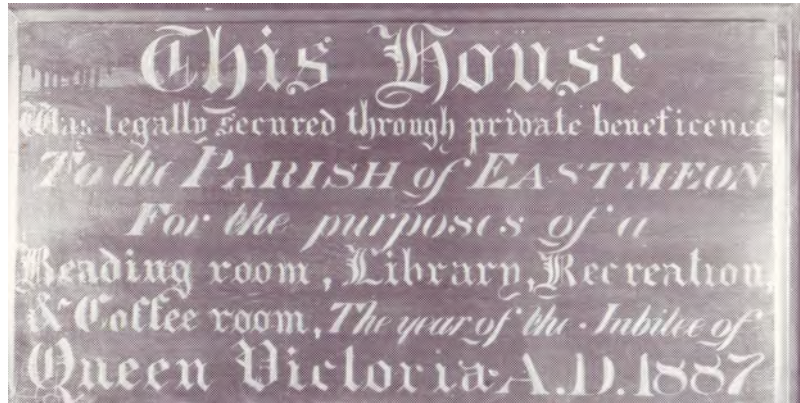 This House
Was legally secured through private beneficence
To the PARISH of EASTMEON
For the purposes of a
Reading room, Library, Recreation,
& Coffee room, The year of the Jubilee of
Queen Victoria A.D. 1887